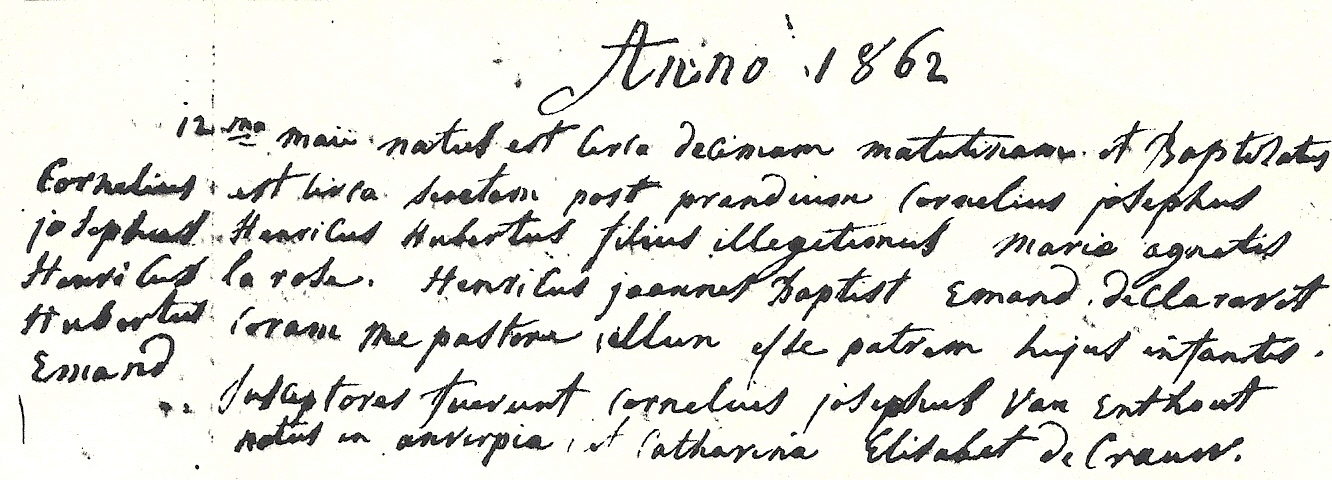 Anno 1862
12 ma maii natus est circa decimam matutinam et Baptisatus
Cornelius est circa sextam post prandium Cornelius josephus
josephus Henricus Hubertus filius illegetimus marie agnetis
Henricus la rose. Henricus joannes Baptist Emand declaravit
Hubertus coram me pastore illum esse patrem hujus infantis.
Emand
susceptores fuerunt Cornelius josephus Van Enthout
natus in anverpia, et Catharina Elisabet de Crauw.